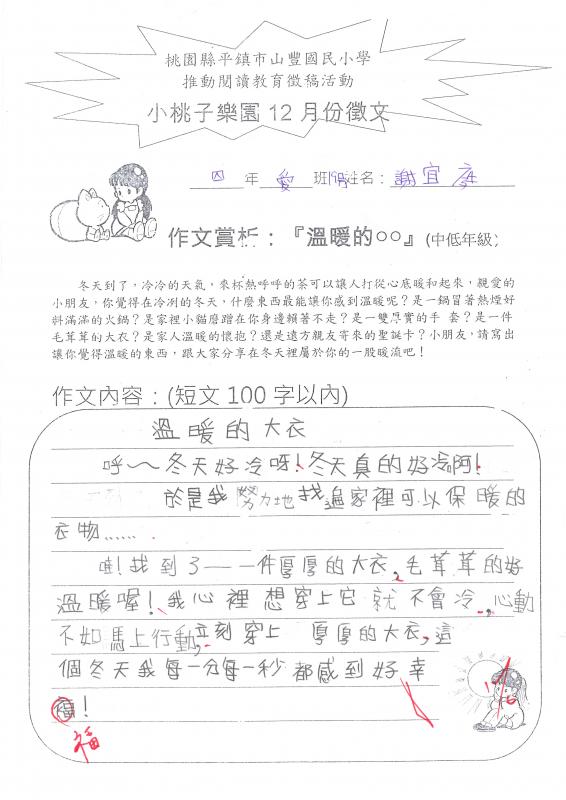 桃園縣平鎮市山豐國民小學
推動閱讀教育徵稿活動
小桃子樂園 12 月份徵文
四 年 愛 班 19號 姓名：謝宜庭
作文賞析：『溫暖的○○』(中低年級)
冬天到了，冷冷的天氣，來杯熱呼呼的茶可以讓人打從心底暖和起來，親愛的
小朋友，你覺得在冷冽的冬天，什麼東西最能讓你感到溫暖呢？是一鍋冒著熱煙好
料滿滿的火鍋？是家裡小貓磨蹭在你身邊賴著不走？是一雙厚實的手 套？是一件
毛茸茸的大衣？是家人溫暖的懷抱？還是遠方親友寄來的聖誕卡？小朋友，請寫出
讓你覺得溫暖的東西，跟大家分享在冬天裡屬於你的一股暖流吧！
作文內容：(短文 100 字以內)
溫暖的大衣
呼～～冬天好冷呀！冬天真的好冷啊！
於是我努力地找遍家裡可以保暖的
衣物……
哇！找到了——一件厚厚的大衣，毛茸茸的好
溫暖喔！我心裡想穿上它就不會冷，心動
不如馬上行動，立刻穿上 厚厚的大衣，這
個冬天我每一分每一秒都感到好幸
福！
福